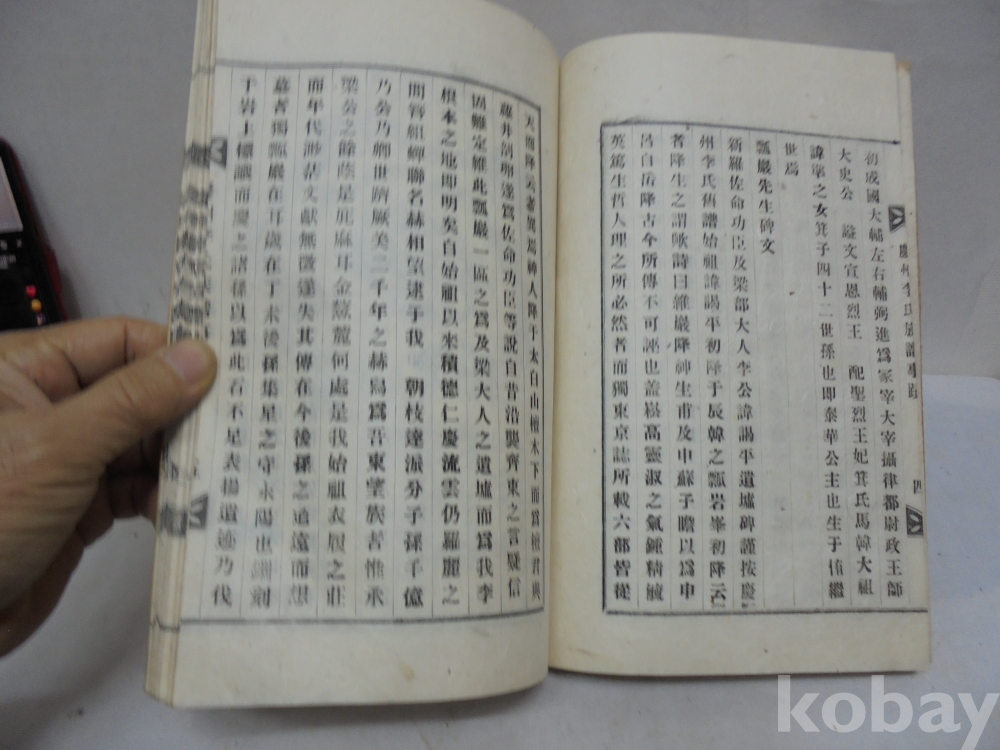 初成國大輔左右輔弼進爲冢宰大宰攝律都尉政王師
大史公 謚文宣恩烈王 配聖烈王妃箕氏馬韓大祖
之女箕子四十二世孫也即泰華公主也生于 繼
世焉
瓢巖先生碑文
新羅佐命功臣及梁部大人李公諱謁平遺墟碑謹按慶
州李氏舊譜始祖諱謁平初降于辰韓之瓢岩峯初降云
者降生之謂歟詩曰維嶽降神生甫及申蘇子瞻以爲申
呂自岳降古今所傳不可誣也盖嵩高靈淑之氣鍾精毓
英篤生哲人理之所必然者而獨東京誌所載六部皆從
天而降云者異焉神人降于太白山檀木下而爲檀君與
蘿井剖卵遂爲佐命功臣等說自昔沿襲齊東之言疑信
固難定維此瓢巖一區之爲及梁大人之遺墟而爲我李
根本之地即明矣自始祖以來積德仁慶流雲仍羅麗之
間簪組蟬聯名赫相望逮于我 朝枝達派分子孫千億
乃公乃卿世躋厥美二千年之赫舄爲吾東望族苦惟承
梁公之餘蔭是庇麻耳金鰲麓何處是我始祖衣履之莊
而年代渺茫文獻無徵遂失其傳在今後孫之追遠而想
慕者獨瓢巖在耳歲在丁未後孫集星之守永陽也 刻
于岩上標識而慶之諸孫以爲此石不足表揚遺迹乃伐
四
kobay